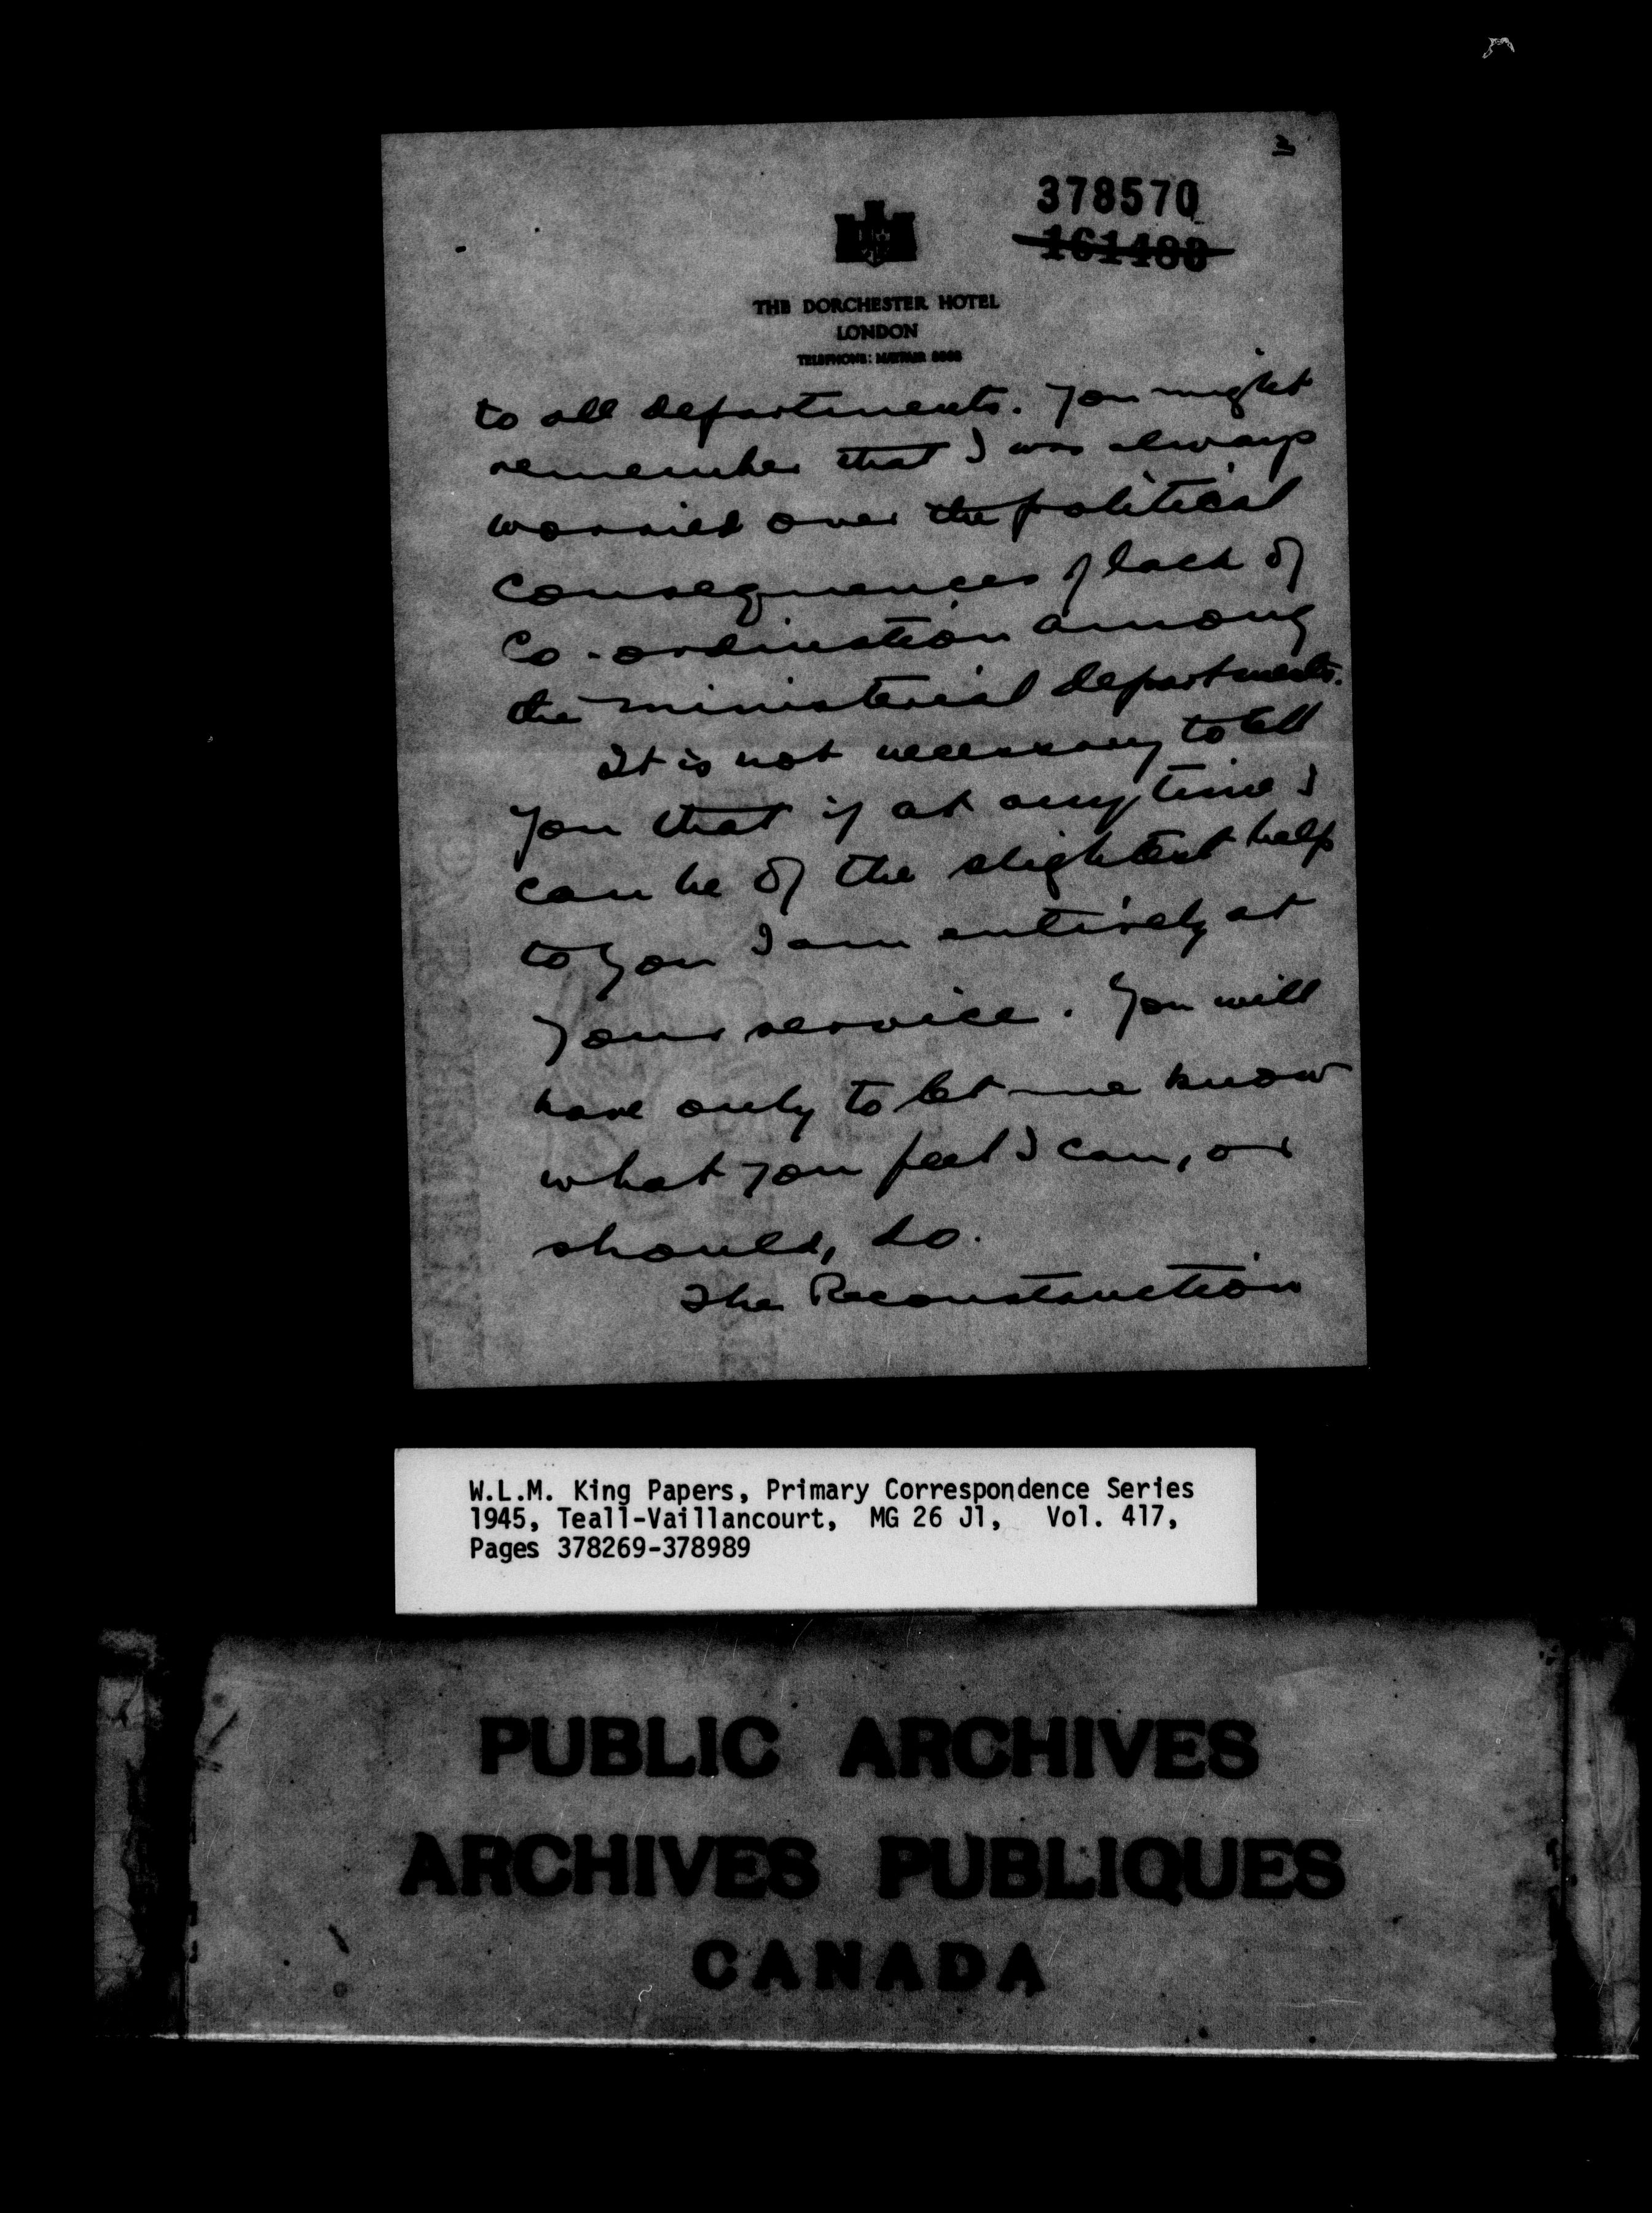 3
378570
161480
THE DORCHESTER HOTEL
LONDON
TELEPHONE: MAYFAIR 8888
to all departments. You might
remember that I was always
worried over the political
consequences of lack of
Co-ordination among
the ministerial departments.
It is not necessary to tell
you that if at any time I
can be of the slightest help
to you I am entirely at
your service. You will
have only to let me know
what you feel I can, or
should, do.
The Reconstruction
W.L.M. King Papers, Primary Correspondence Series
1945, Teall-Vaillancourt, MG 26 J1, Vol. 417,
Pages 378269-378989
PUBLIC ARCHIVES
ARCHIVES PUBLIQUES
CANADA